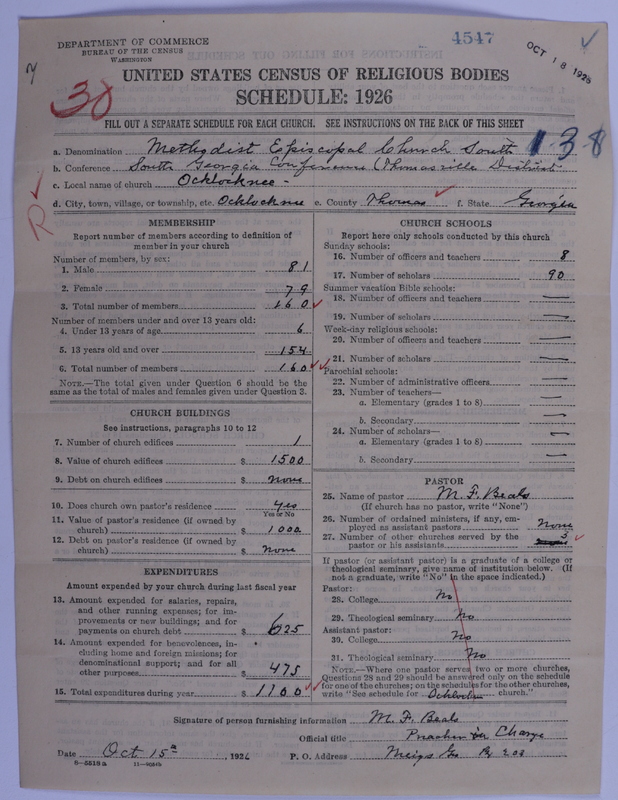 4547
OCT 18 1926
DEPARTMENT OF COMMERCE
BUREAU OF THE CENSUS
WASHINGTON
UNITED STATES CENSUS OF RELIGIOUS BODIES
SCHEDULE: 1926
38
FILL OUT A SEPARATE SCHEDULE FOR EACH CHURCH. SEE INSTRUCTIONS ON THE BACK OF THIS SHEET
a. Denomination Methodist Episcopal Church South 1-3-8
b. Conference South Georgia Conference (Thomasville District
c. Local name of church Ocklocknee -
d. City, town, village, or township, etc. Ocklocknee e. County Thomas f. State Georgia
R
MEMBERSHIP
Report number of members according to definition of
member in your church
Number of members, by sex:
1. Male 81
2. Female 79
3. Total number of members 160
Number of members under and over 13 years old:
4. Under 13 years of age 6
5. 13 years old and over 154
6. Total number of members 160
NOTE.—The total given under Question 6 should be the
same as the total of males and females given under Question 3.
CHURCH BUILDINGS
See instructions, paragraphs 10 to 12
7. Number of church edifices 1
8. Value of church edifices $ 1500
9. Debt on church edifices $ none
10. Does church own pastor's residence yes
Yes or No
11. Value of pastor's residence (if owned by
church) $ 1000
12. Debt on pastor's residence (if owned by
church) $ none
EXPENDITURES
Amount expended by your church during last fiscal year
13. Amount expended for salaries, repairs,
and other running expenses; for im-
provements or new buildings; and for
payments on church debt $ 625
14. Amount expended for benevolences, in-
cluding home and foreign missions; for
denominational support; and for all
other purposes $ 475
15. Total expenditures during year $ 1100
CHURCH SCHOOLS
Report here only schools conducted by this church
Sunday schools:
16. Number of officers and teachers 8
17. Number of scholars 90
Summer vacation Bible schools:
18. Number of officers and teachers —
19. Number of scholars —
Week-day religious schools:
20. Number of officers and teachers —
21. Number of scholars —
Parochial schools:
22. Number of administrative officers —
23. Number of teachers—
a. Elementary (grades 1 to 8) —
b. Secondary —
24. Number of scholars—
a. Elementary (grades 1 to 8) —
b. Secondary —
PASTOR
25. Name of pastor M. F. Beals
(If church has no pastor, write "None")
26. Number of ordained ministers, if any, em-
ployed as assistant pastors none
27. Number of other churches served by the
pastor or his assistants 3
If pastor (or assistant pastor) is a graduate of a college or
theological seminary, give name of institution below. (If
not a graduate, write "No" in the space indicated.)
Pastor:
28. College No
29. Theological seminary No
Assistant pastor:
30. College No
31. Theological seminary No
NOTE.—Where one pastor serves two or more churches,
Questions 28 and 29 should be answered only on the schedule
for one of the churches; on the schedules for the other churches,
write "See schedule for Ocklocknee church."
Signature of person furnishing information M. F. Beals
Official title Preacher in Charge
Date Oct. 15th, 1926 P. O. Address Meigs Ga
8—5518a